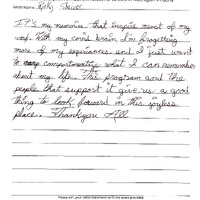 Artist Name:
IT's my memories that inspire most of my
work. With my covid brain I'm forgetting
more of my experiances and I just want
to compartmentize what I can remember
about my life. This program and the
people that support it give us a good
thing to look forward in this joyless
place. Thank you All
Please edit your Artist Statement to fit the space provided.